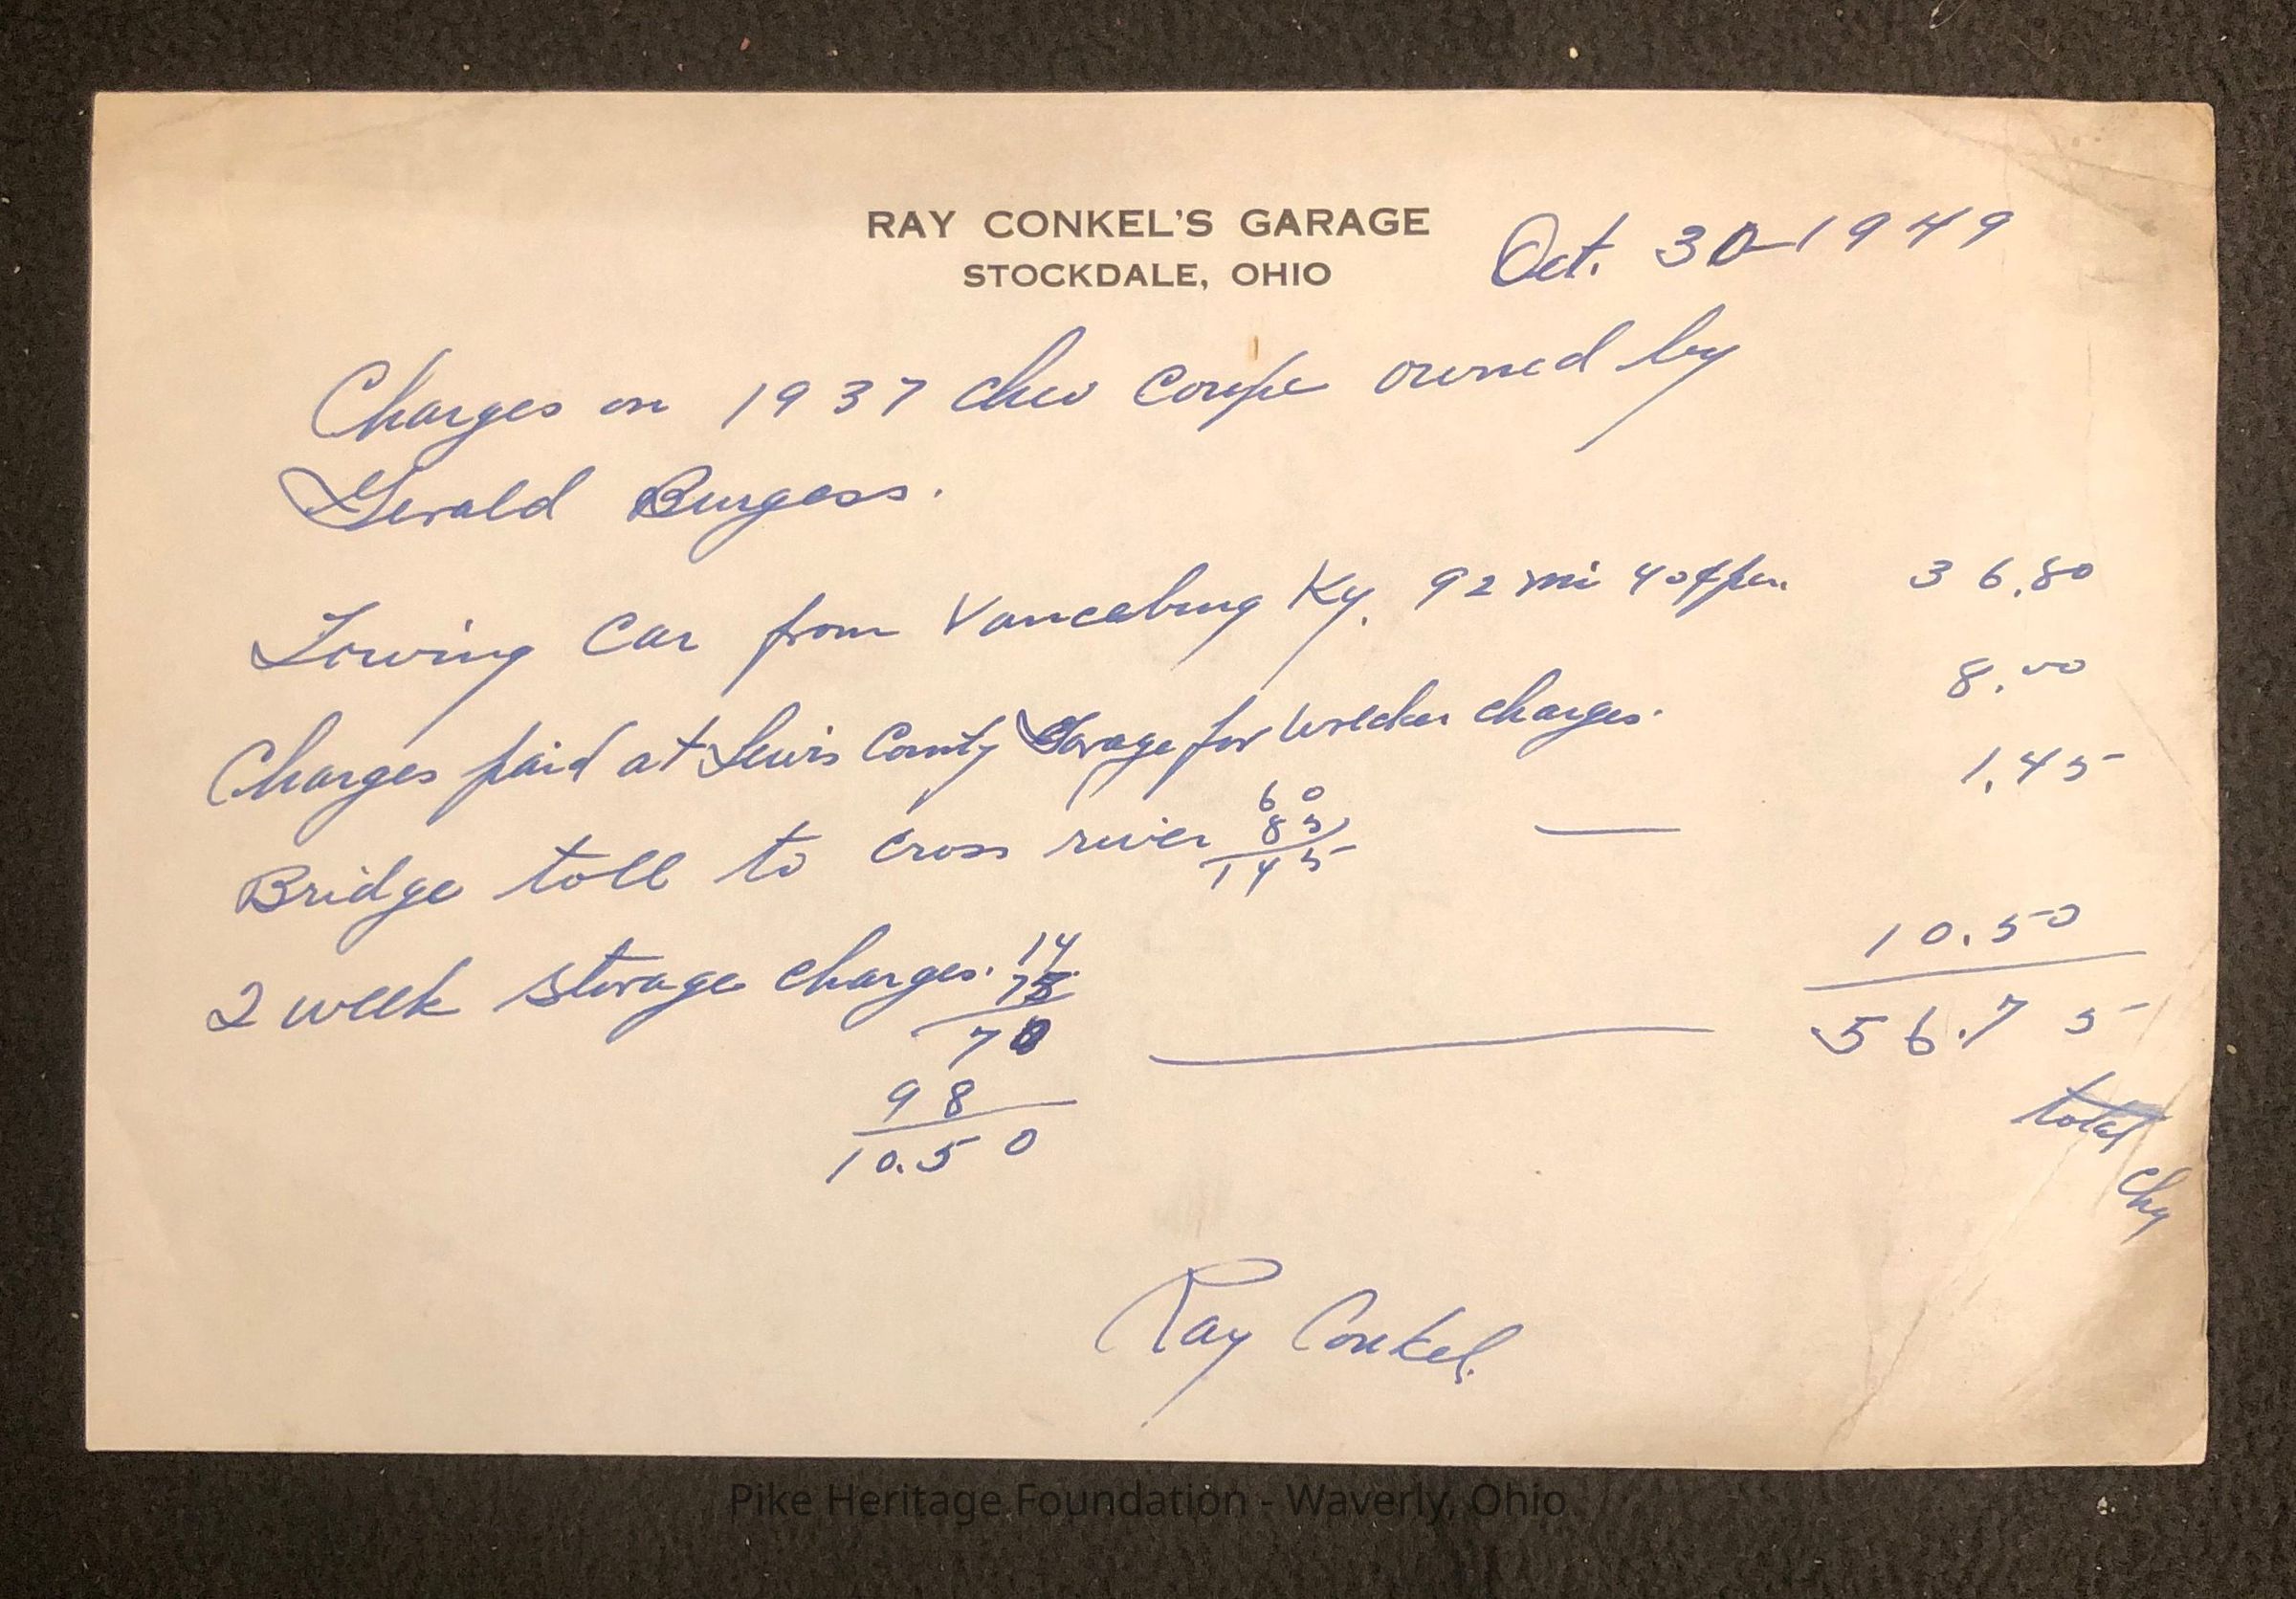 RAY CONKEL'S GARAGE
STOCKDALE, OHIO
Oct. 30-1949
Charges on 1937 chev Coupe owned by
Gerald Burgess.
Towing Car from Vanceburg Ky. 92 mi 40¢ per. 36.80
Charges paid at Lewis County Garage for Wrecker charges. 8.00
Bridge toll to cross river 1.45
60
85
145
2 week storage charges. 10.50
14
75
70
98
10.50
56.75
total
chg
Ray Conkel.
Pike Heritage Foundation - Waverly, Ohio